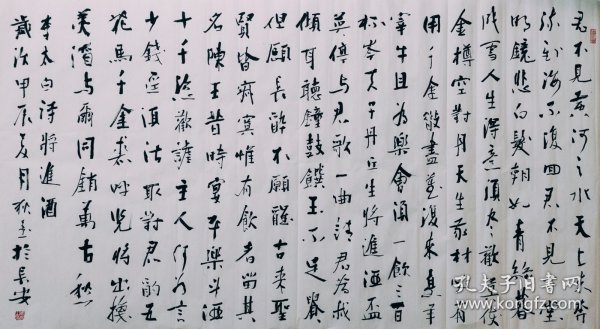 君不見黃河之水天上來奔
流到海不復回君不見高堂
明鏡悲白髮朝如青絲暮
成雪人生得意須盡歡莫使
金樽空對月天生我材必有
用千金散盡還復來烹羊
宰牛且為樂會須一飲三百
杯岑夫子丹丘生將進酒杯
莫停與君歌一曲請君為我
傾耳聽鐘鼓饌玉不足貴
但願長醉不願醒古來聖
賢皆寂寞惟有飲者留其
名陳王昔時宴平樂斗酒
十千恣歡謔主人何為言
少錢逕須沽取對君酌五
花馬千金裘呼兒將出換
美酒與爾同銷萬古愁
李太白詩將進酒
歲次甲辰夏月於長安
孔夫子旧书网
www.kongfz.com